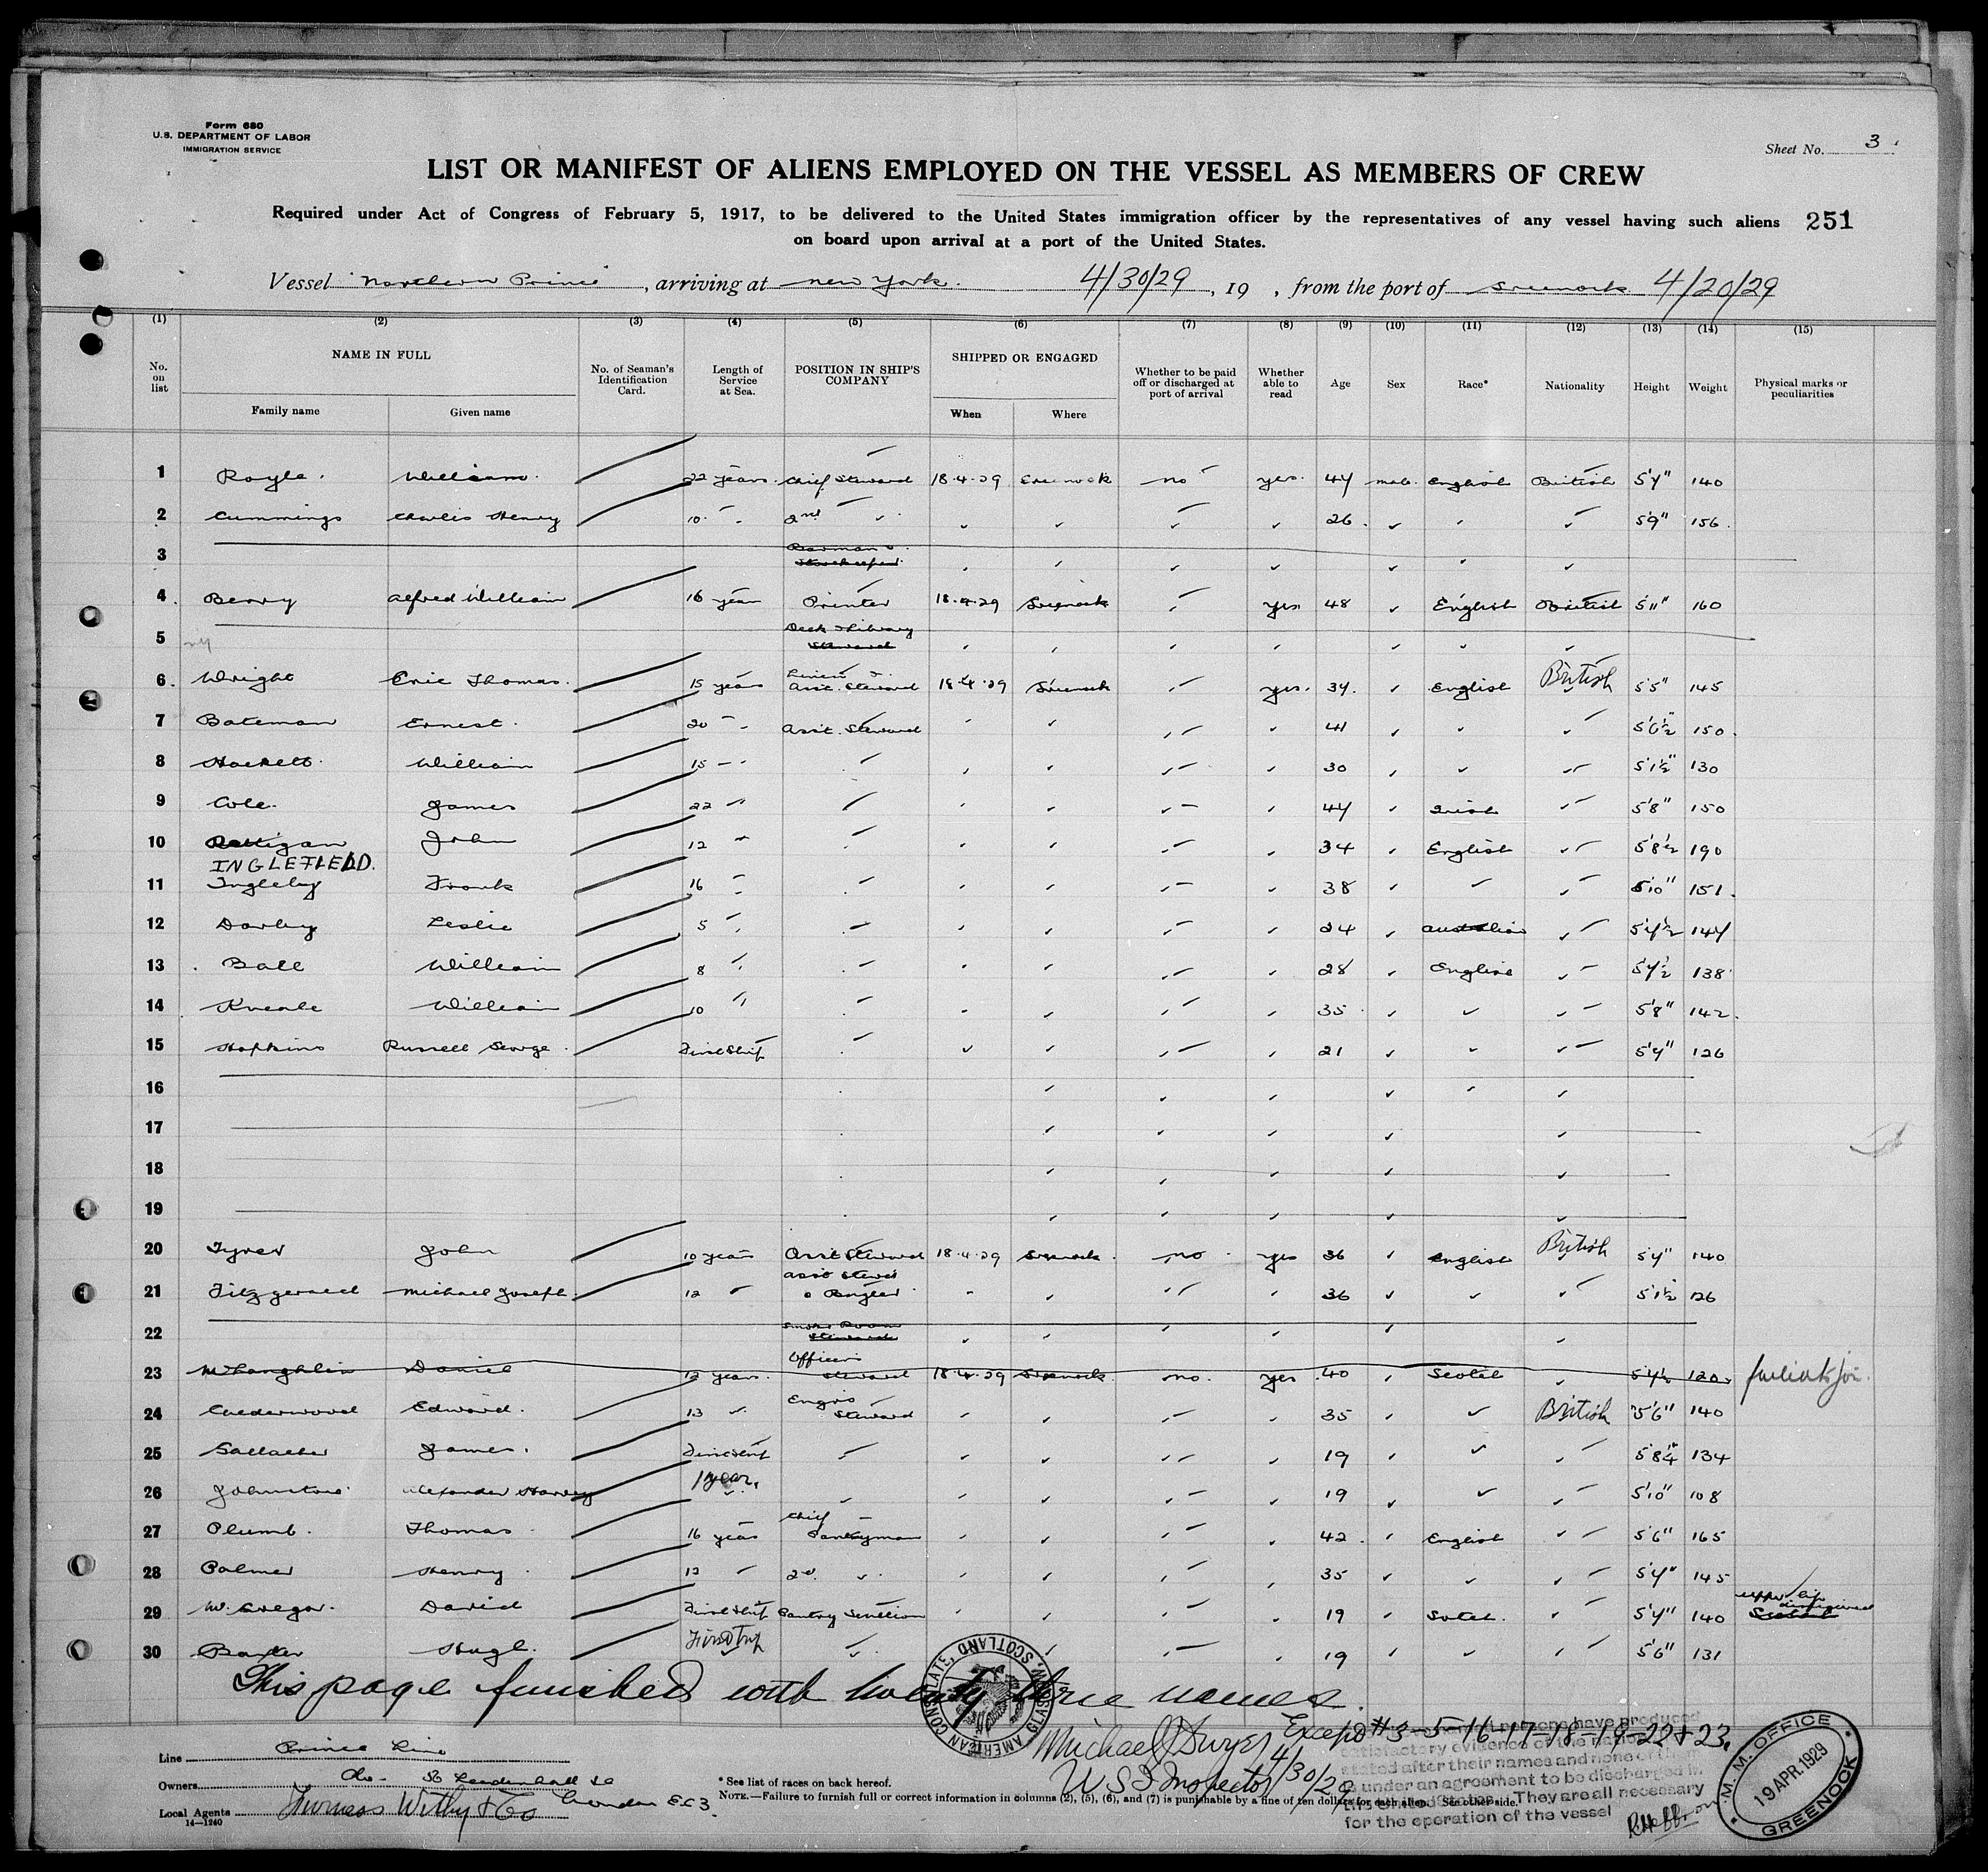 Form 680
U.S. DEPARTMENT OF LABOR
IMMIGRATION SERVICE
Sheet No. 3
LIST OR MANIFEST OF ALIENS EMPLOYED ON THE VESSEL AS MEMBERS OF CREW
Required under Act of Congress of February 5, 1917, to be delivered to the United States immigration officer by the representatives of any vessel having such aliens 251
on board upon arrival at a port of the United States.
Vessel "Northern Prince", arriving at New York. 4/30/29, 19 , from the port of Greenock 4/20/29
(1) (2) (3) (4) (5) (6) (7) (8) (9) (10) (11) (12) (13) (14) (15)
No. on list NAME IN FULL Family name Given name No. of Seaman's Identification Card. Length of Service at Sea. POSITION IN SHIP'S COMPANY SHIPPED OR ENGAGED When Where Whether to be paid off or discharged at port of arrival Whether able to read Age Sex Race* Nationality Height Weight Physical marks or peculiarities
1 Royle. William. 22 years. Chief Steward 18.4.29 Greenock no yes. 44 male English British 5'4" 140
2 Cummings Charles Henry 10 2nd 26 5'9" 156
3 Barman & Storekeeper
4 Berry Alfred William 16 years Printer 18.4.29 Greenock yes 48 English British 5'11" 160
5 Deck & Library Steward
6 Wright Eric Thomas. 15 years Linen & Asst. Steward 18.4.29 Greenock yes. 34. English British 5'5" 145
7 Bateman Ernest. 20 Asst. Steward 41 5'6½" 150
8 Hackett William 15 30 5'1½" 130
9 Cole. James 22 44 Irish 5'8" 150
10 Rattigan John 12 34 English 5'8½ 190
INGLEFIELD.
11 Ingleby Frank 16 38 5'10" 151
12 Darley Leslie 5 24 Australian 5'4½ 144
13 Ball William 8 28 English 5'4½ 138
14 Kneale William 10 35 5'8" 142
15 Hopkins Russell George. First Ship 21 5'4" 126
16
17
18
19
20 Tyrer John 10 years Asst Steward 18.4.29 Greenock no yes 36 English British 5'4" 140
21 Fitzgerald Michael Joseph. 12 Asst Stew'd & Bugler 36 5'1½ 126
22 Smoke Room Steward
23 McLaughlin Daniel 12 years. Officers Steward 18.4.29 Greenock no. yes 40 Scotch 5'4½ 120 failed to join.
24 Calderwood Edward. 13 Engrs Steward 35 British 5'6" 140
25 Gallacher James. First Ship 19 5'8¼" 134
26 Johnstone Alexander Harvey 1 year. 19 5'10" 108
27 Plumb. Thomas 16 years Chief Pantryman 42 English 5'6" 165
28 Palmer Henry 13 2nd 35 5'4" 145
29 McGregor. David First Ship Pantry Scullion 19 Scotch. 5'4" 140 upper lip disfigured
30 Baxter Hugh. First Trip 19 5'6" 131
This page furnished with twenty three names.
AMERICAN CONSULATE, GLASGOW, SCOTLAND
Except #3-5-16-17-18-19-22+23.
Michael J Dwyer 4/30/29
U S I Inspector
persons have produced
satisfactory evidence of the nationality
stated after their names and none of them
is under an agreement to be discharged in
the United States. They are all necessary
for the operation of the vessel
M. M. OFFICE
19 APR. 1929
GREENOCK
Line Prince Line
Owners do - 56 Leadenhall St London E.C.3.
Local Agents Furness Withy & Co
14—1240
* See list of races on back hereof.
NOTE.—Failure to furnish full or correct information in columns (2), (5), (6), and (7) is punishable by a fine of ten dollars for each alien. See other side.